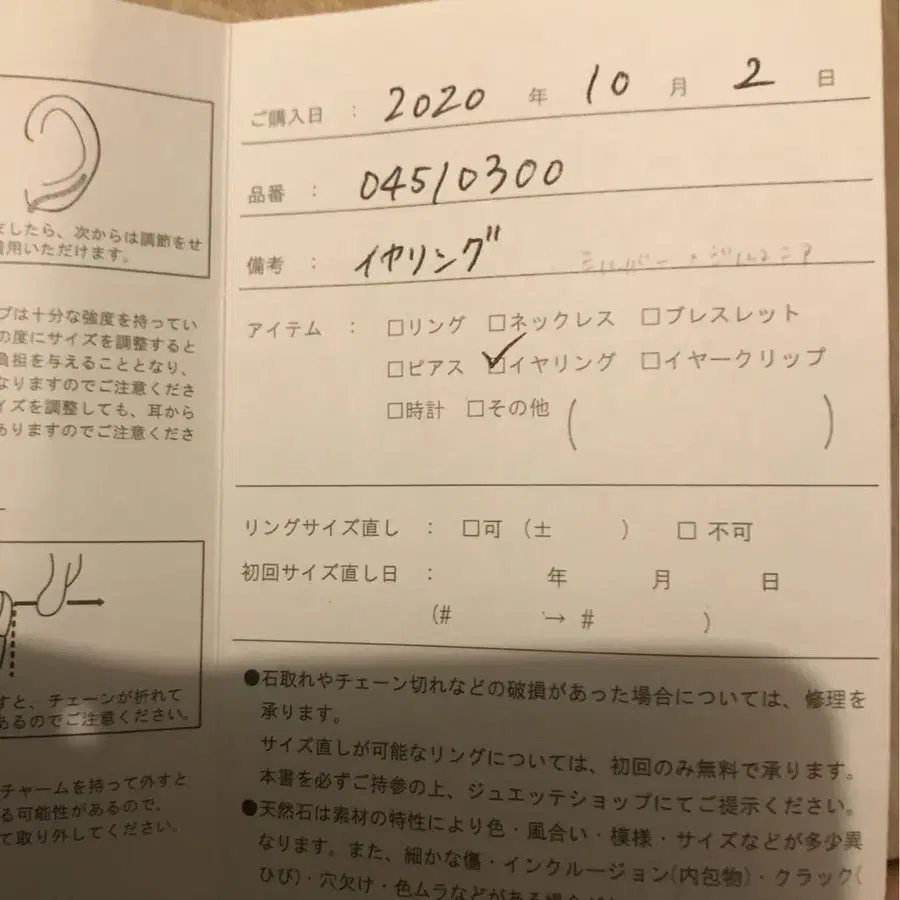 としたら、次からは調節をせ
着用いただけます。
プは十分な強度を持ってい
の度にサイズを調整すると
負担を与えることとなり、
なりますのでご注意くださ
イズを調整しても、耳から
ありますのでご注意くださ
すと、チェーンが折れて
あるのでご注意ください。
チャームを持って外すと
る可能性があるので、
て取り外してください。
ご購入日 : 2020 年 10 月 2 日
品番 : 04510300
備考 : イヤリング
アイテム : □リング □ネックレス □ブレスレット
□ピアス ☑イヤリング □イヤークリップ
□時計 □その他 ( )
リングサイズ直し : □可 (± ) □ 不可
初回サイズ直し日 : 年 月 日
(# → # )
●石取れやチェーン切れなどの破損があった場合については、修理を
承ります。
サイズ直しが可能なリングについては、初回のみ無料で承ります。
本書を必ずご持参の上、ジュエッテショップにてご提示ください。
●天然石は素材の特性により色・風合い・模様・サイズなどが多少異
なります。また、細かな傷・インクルージョン(内包物)・クラック(
ひび)・穴欠け・色ムラなどがある場合が